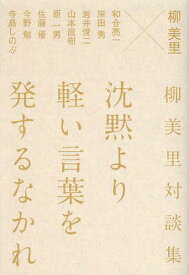 柳美里
×
和合亮一
岸田秀
岩井俊二
山本直樹
原一男
佐藤優
今野勉
寺島しのぶ
柳美里対談集
沈黙より
軽い言葉を
発するなかれ